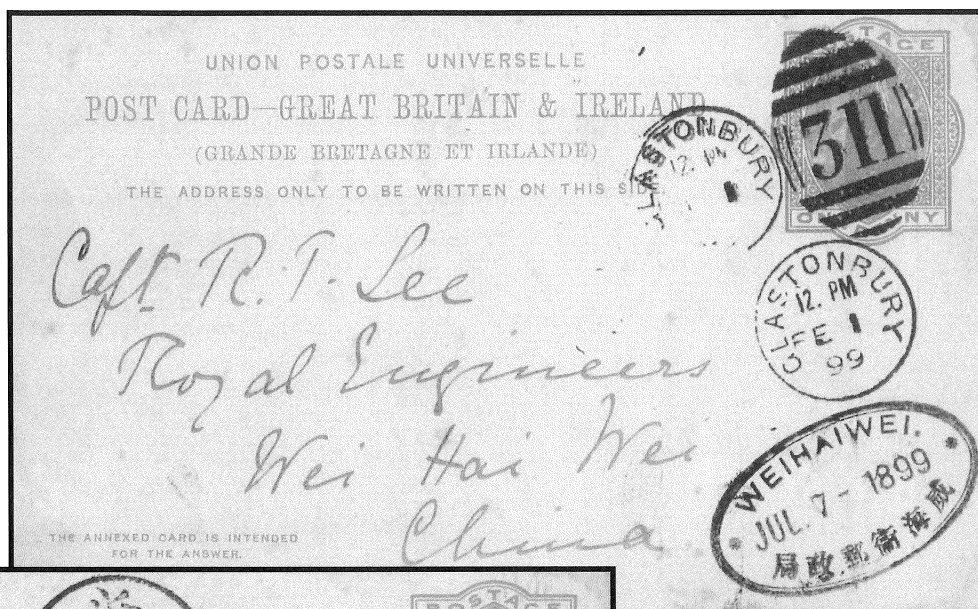 UNION POSTALE UNIVERSELLE
POST CARD—GREAT BRITAIN & IRELAND
(GRANDE BRETAGNE ET IRLANDE)
THE ADDRESS ONLY TO BE WRITTEN ON THIS SIDE.
POSTAGE
311
ONE PENNY
GLASTONBURY
12. PM
GLASTONBURY
12. PM
FE 1
99
Capt. R. T. Lee
Royal Engineers
Wei Hai Wei
China
WEIHAIWEI.
JUL. 7 - 1899
威海衛郵政局
THE ANNEXED CARD IS INTENDED
FOR THE ANSWER.
POSTAGE